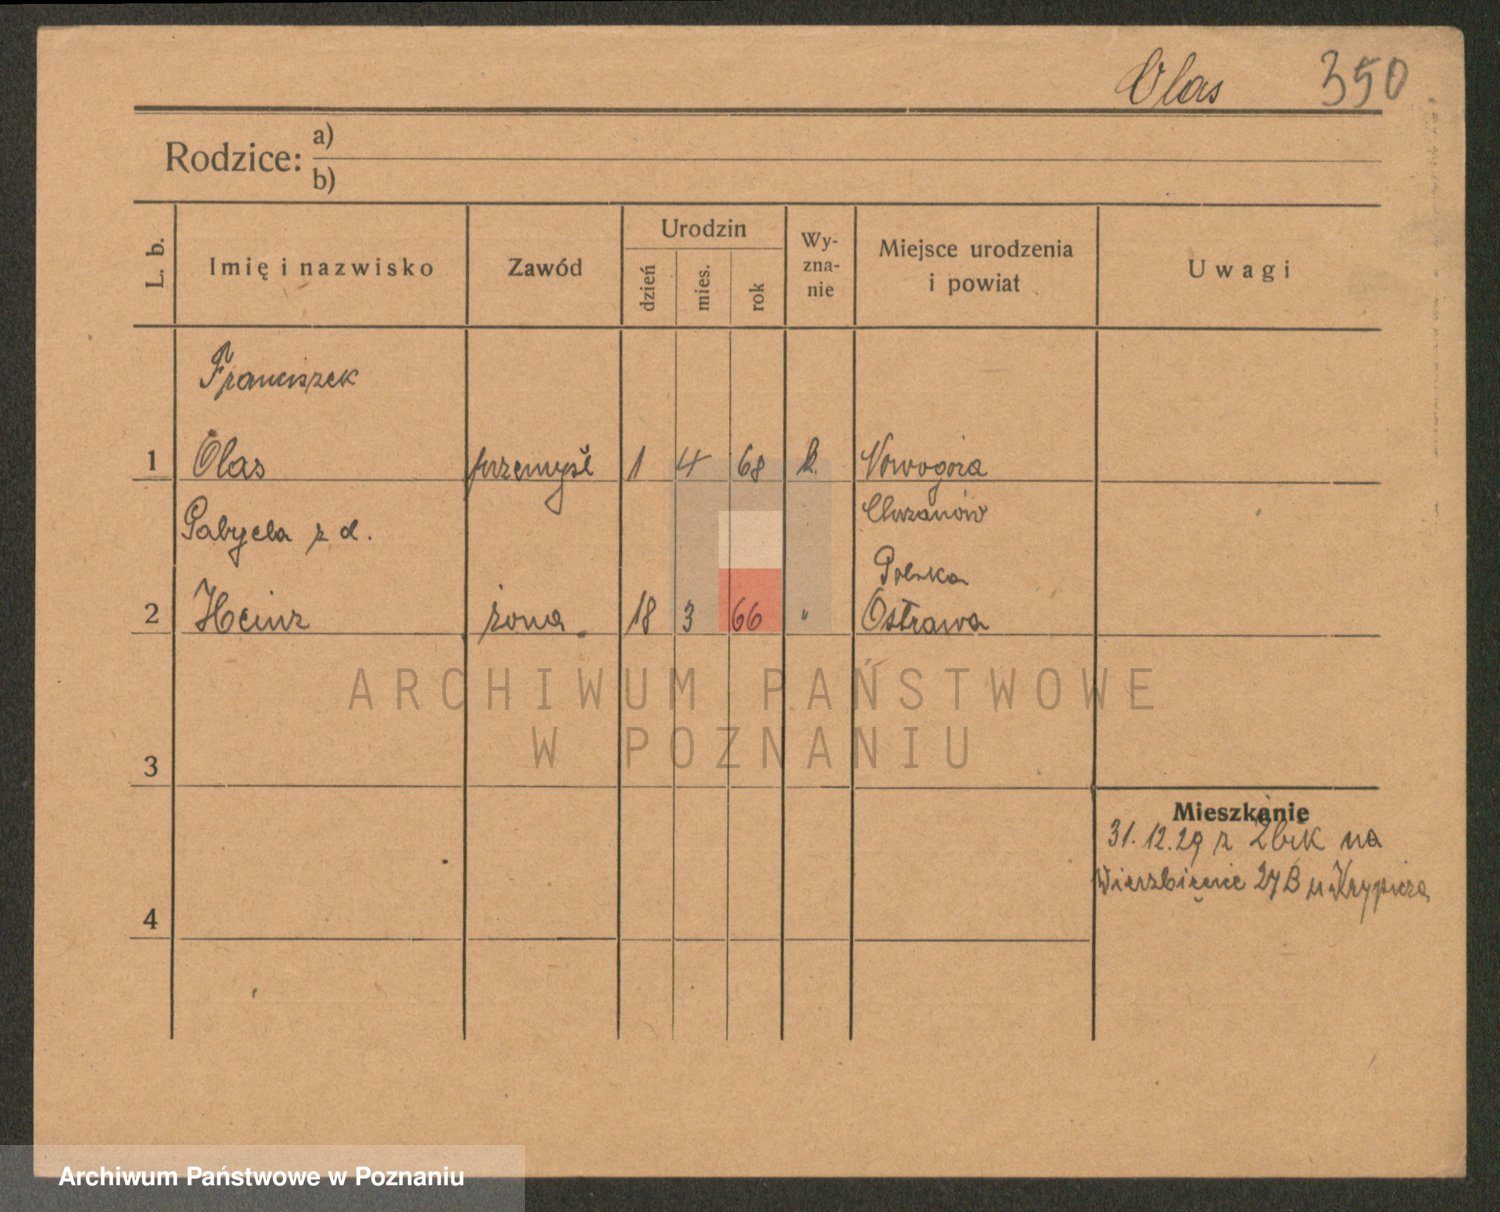 Olas 350
Rodzice: a)
b)
L. b. Imię i nazwisko Zawód Urodzin dzień mies. rok Wy-zna-nie Miejsce urodzenia i powiat Uwagi
Franciszek
1 Olas przemysł 1 4 68 k. Nowogóra
Gabyela z d. Chrzanów
Polska
2 Heinz żona 18 3 66 " Ostrawa
ARCHIWUM PAŃSTWOWE
W POZNANIU
3
Mieszkanie
31.12.29 z na
Wierzbięcic 27B u
4
Archiwum Państwowe w Poznaniu